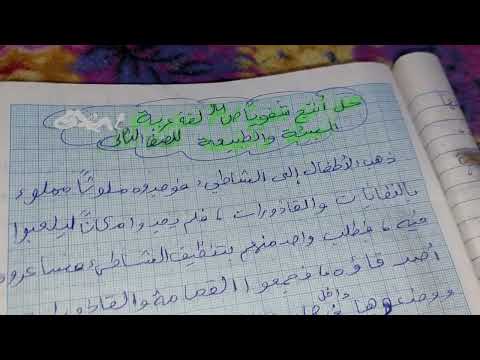 حل أنتج شفويا ص 21 لغة عربية
البيئة والطبيعة للصف الثاني
ذهب الأطفال إلى الشاطئ، فوجدوه ملوثا مملوء
بالنفايات والقاذورات، فلم يجدوا مكانا ليلعبوا
فيه، فطلب واحد منهم بتنظيف الشاطئ، فساعدوه
أصدقاؤه، فجمعوا القمامة والقاذورات
ووضعوها داخل